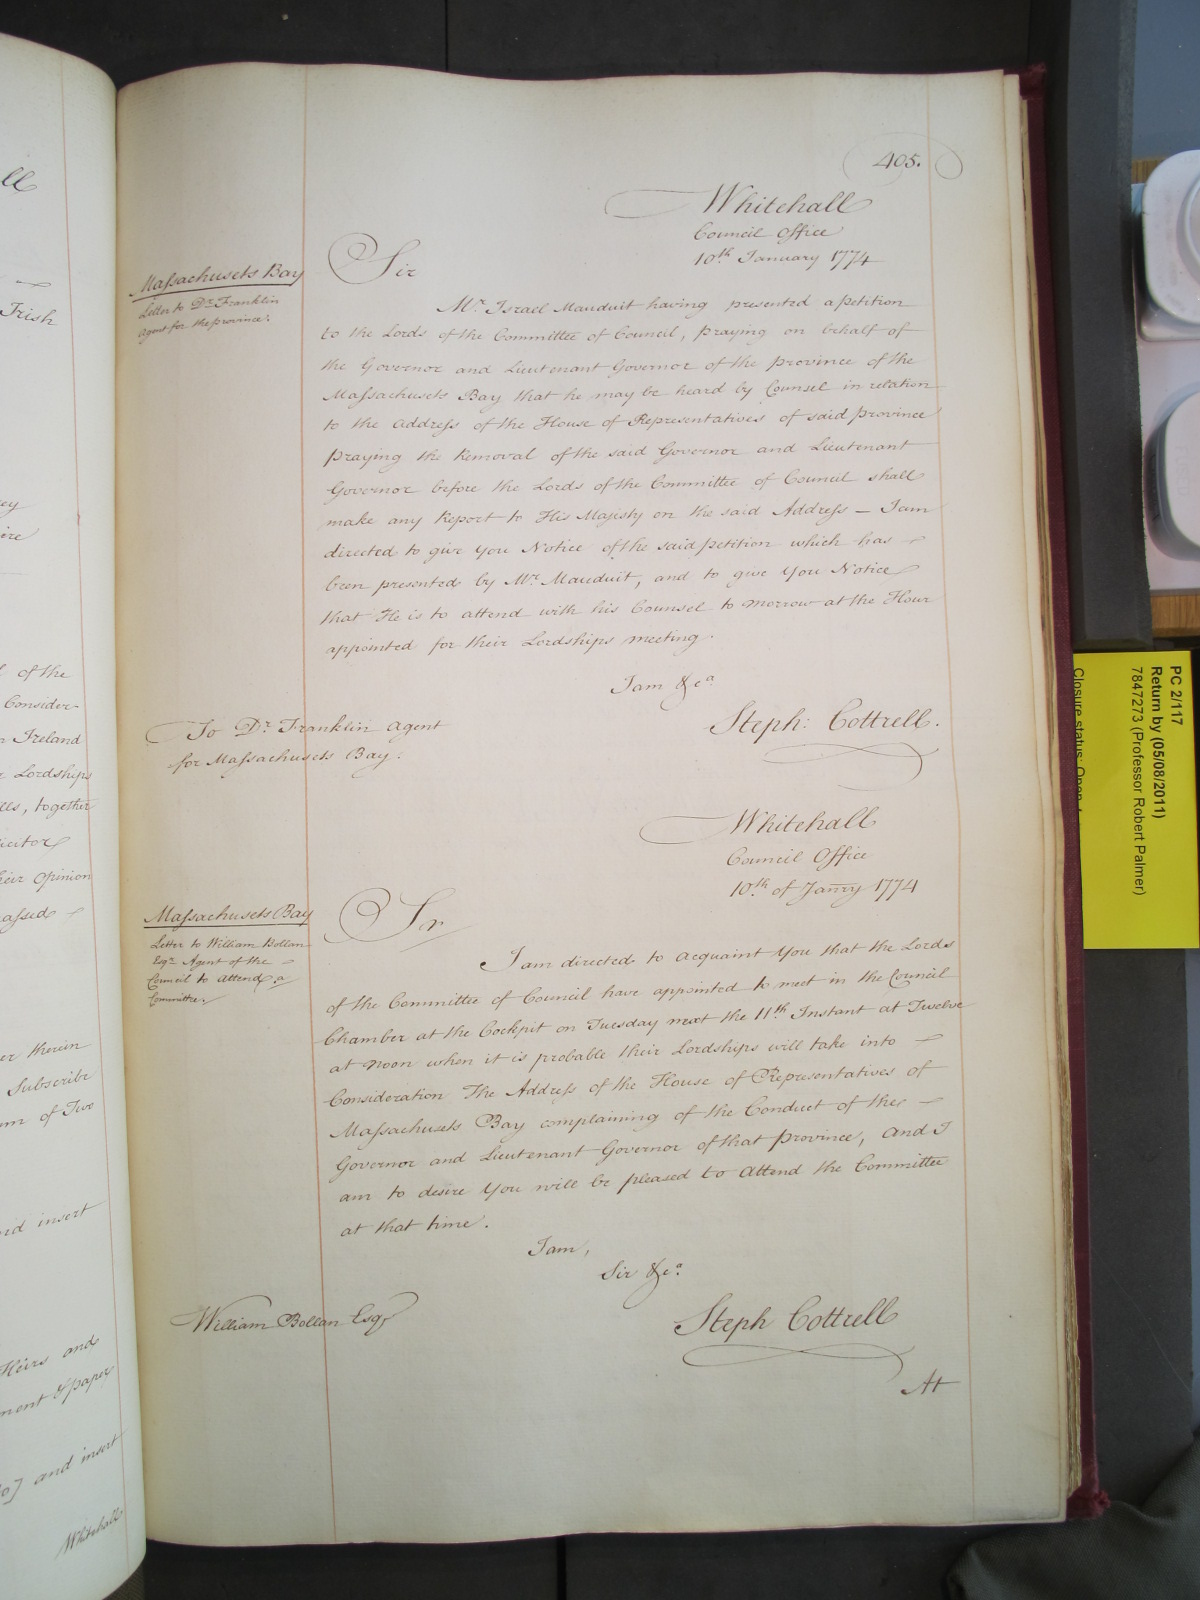 405.
Whitehall
Council Office
10th January 1774
Massachusets Bay
Letter to Dr. Franklin
Agent for the province.
Sir
Mr. Israel Mauduit having presented a petition
to the Lords of the Committee of Council, praying on behalf of
the Governor and Lieutenant Governor of the province of the
Massachusets Bay that he may be heard by Counsel in relation
to the Address of the House of Representatives of said province
praying the Removal of the said Governor and Lieutenant
Governor before the Lords of the Committee of Council shall
make any Report to His Majesty on the said Address — I am
directed to give You Notice of the said petition which has
been presented by Mr. Mauduit, and to give You Notice
that He is to attend with his Counsel to morrow at the Hour
appointed for their Lordships meeting.
I am &ca.
Steph: Cottrell.
To Dr. Franklin Agent
for Massachusets Bay.
Whitehall
Council Office
10th of Janry 1774
Massachusets Bay
Letter to William Bollan
Esqr. Agent of the
Council to attend a
Committee.
Sr
I am directed to acquaint You that the Lords
of the Committee of Council have appointed to meet in the Council
Chamber at the Cockpit on Tuesday next the 11th Instant at Twelve
at Noon when it is probable their Lordships will take into
Consideration The Address of the House of Representatives of
Massachusets Bay complaining of the Conduct of the
Governor and Lieutenant Governor of that province, and I
am to desire You will be pleased to attend the Committee
at that time.
I am,
Sir &ca.
William Bollan Esqr
Steph Cottrell
At
ll
Irish
of the
Consider-
Ireland
Lordships
together
Opinion
therein
Subscribe
of Two
insert
Heirs and
paper
and insert
Whitehall
PC 2/117
Return by (05/08/2011)
7847273 (Professor Robert Palmer)
Closure status: Open